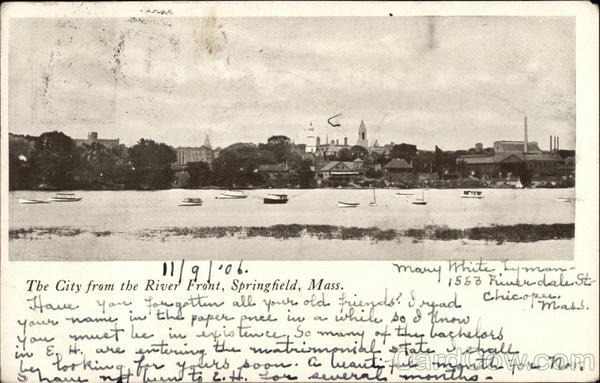 The City from the River Front, Springfield, Mass.
11/9/06.
Mary White Lyman-
1553 Riverdale St-
Chicopee
Mass.
Have you forgotten all your old friends? I read
your name in the paper once in a while so I know
you must be in existence. So many of the bachelors
in E. H. are entering the matrimonial state I shall
be looking for yours soon. A beautiful morning for Nov.
I have not been to E. H. for several months-
CardCow.com